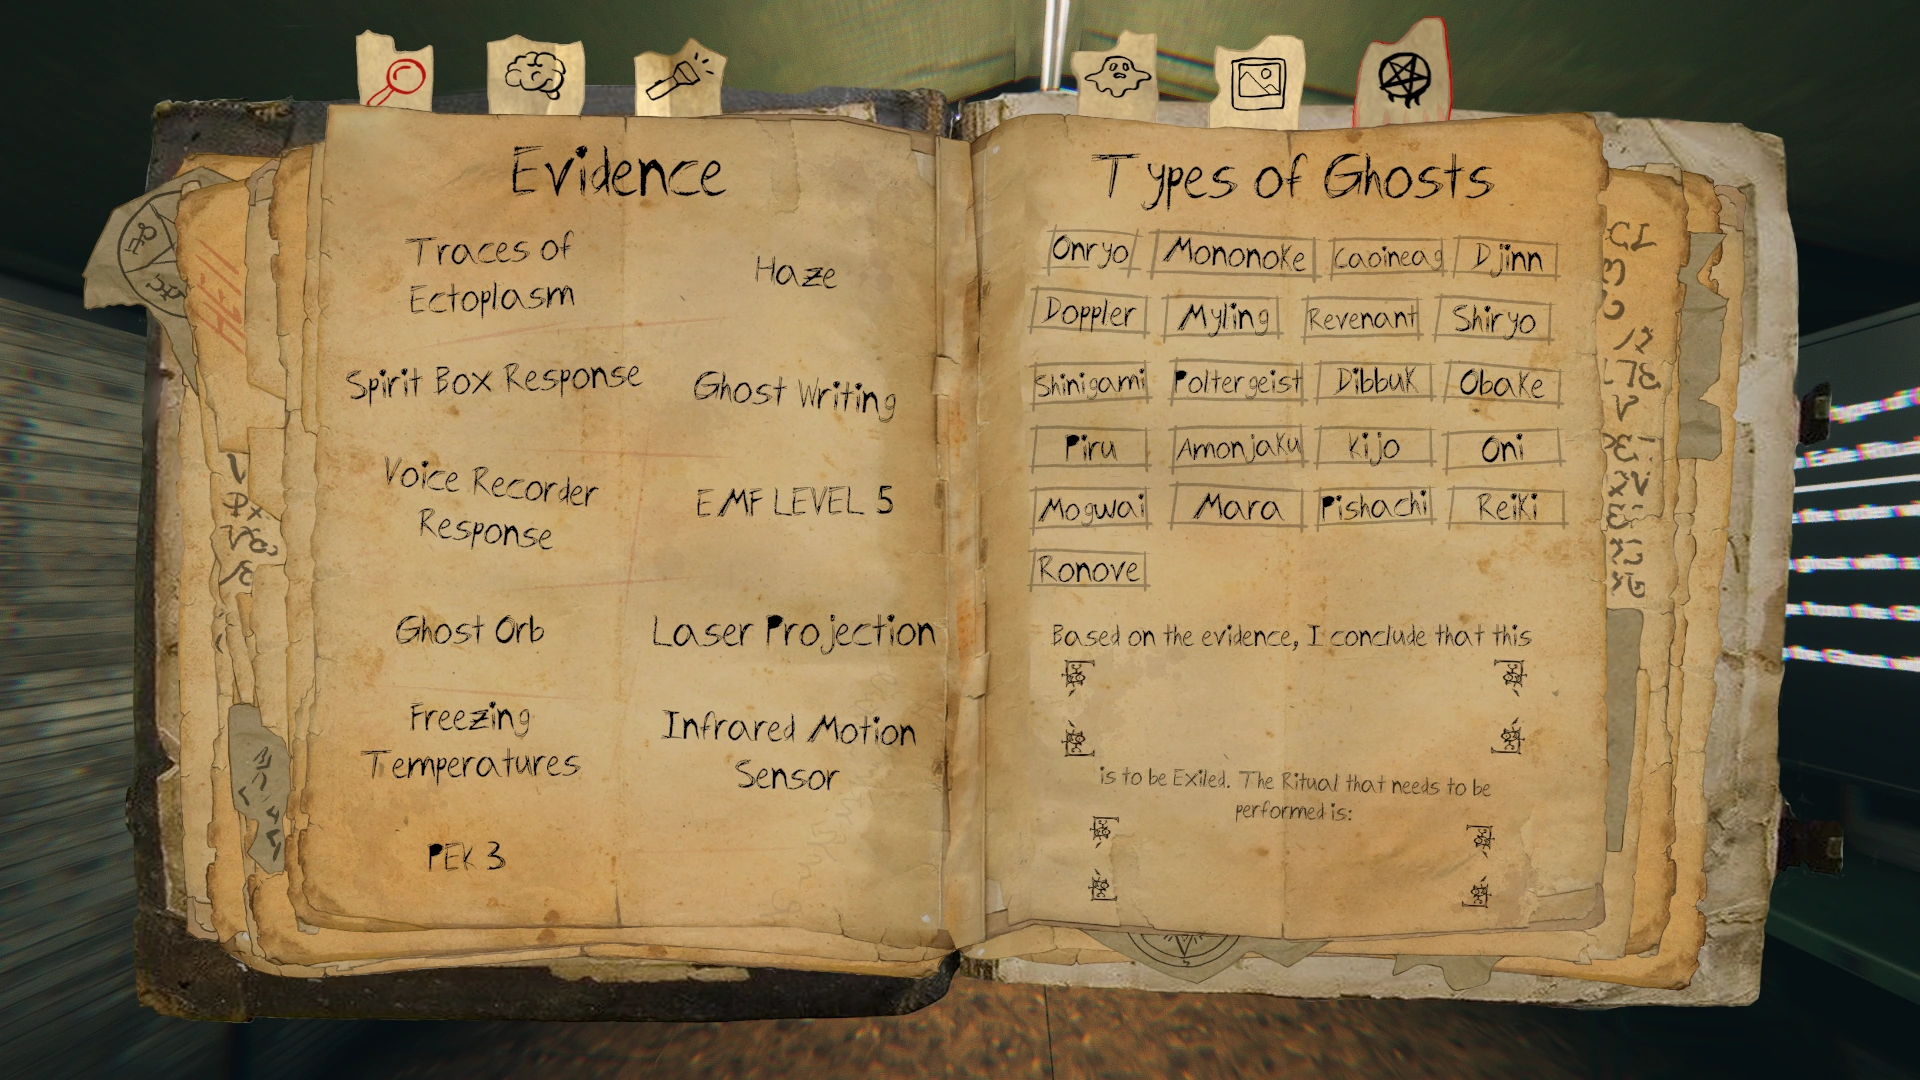 Evidence
Traces of
Ectoplasm
Haze
Spirit Box Response
Ghost Writing
Voice Recorder
Response
EMF LEVEL 5
Ghost Orb
Laser Projection
Freezing
Temperatures
Infrared Motion
Sensor
PEK 3
Types of Ghosts
Onryo Mononoke Caoineag Djinn
Doppler Myling Revenant Shiryo
Shinigami Poltergeist Dibbuk Obake
Piru Amonjaku Kijo Oni
Mogwai Mara Pishachi Reiki
Ronove
Based on the evidence, I conclude that this
is to be Exiled. The Ritual that needs to be
performed is: